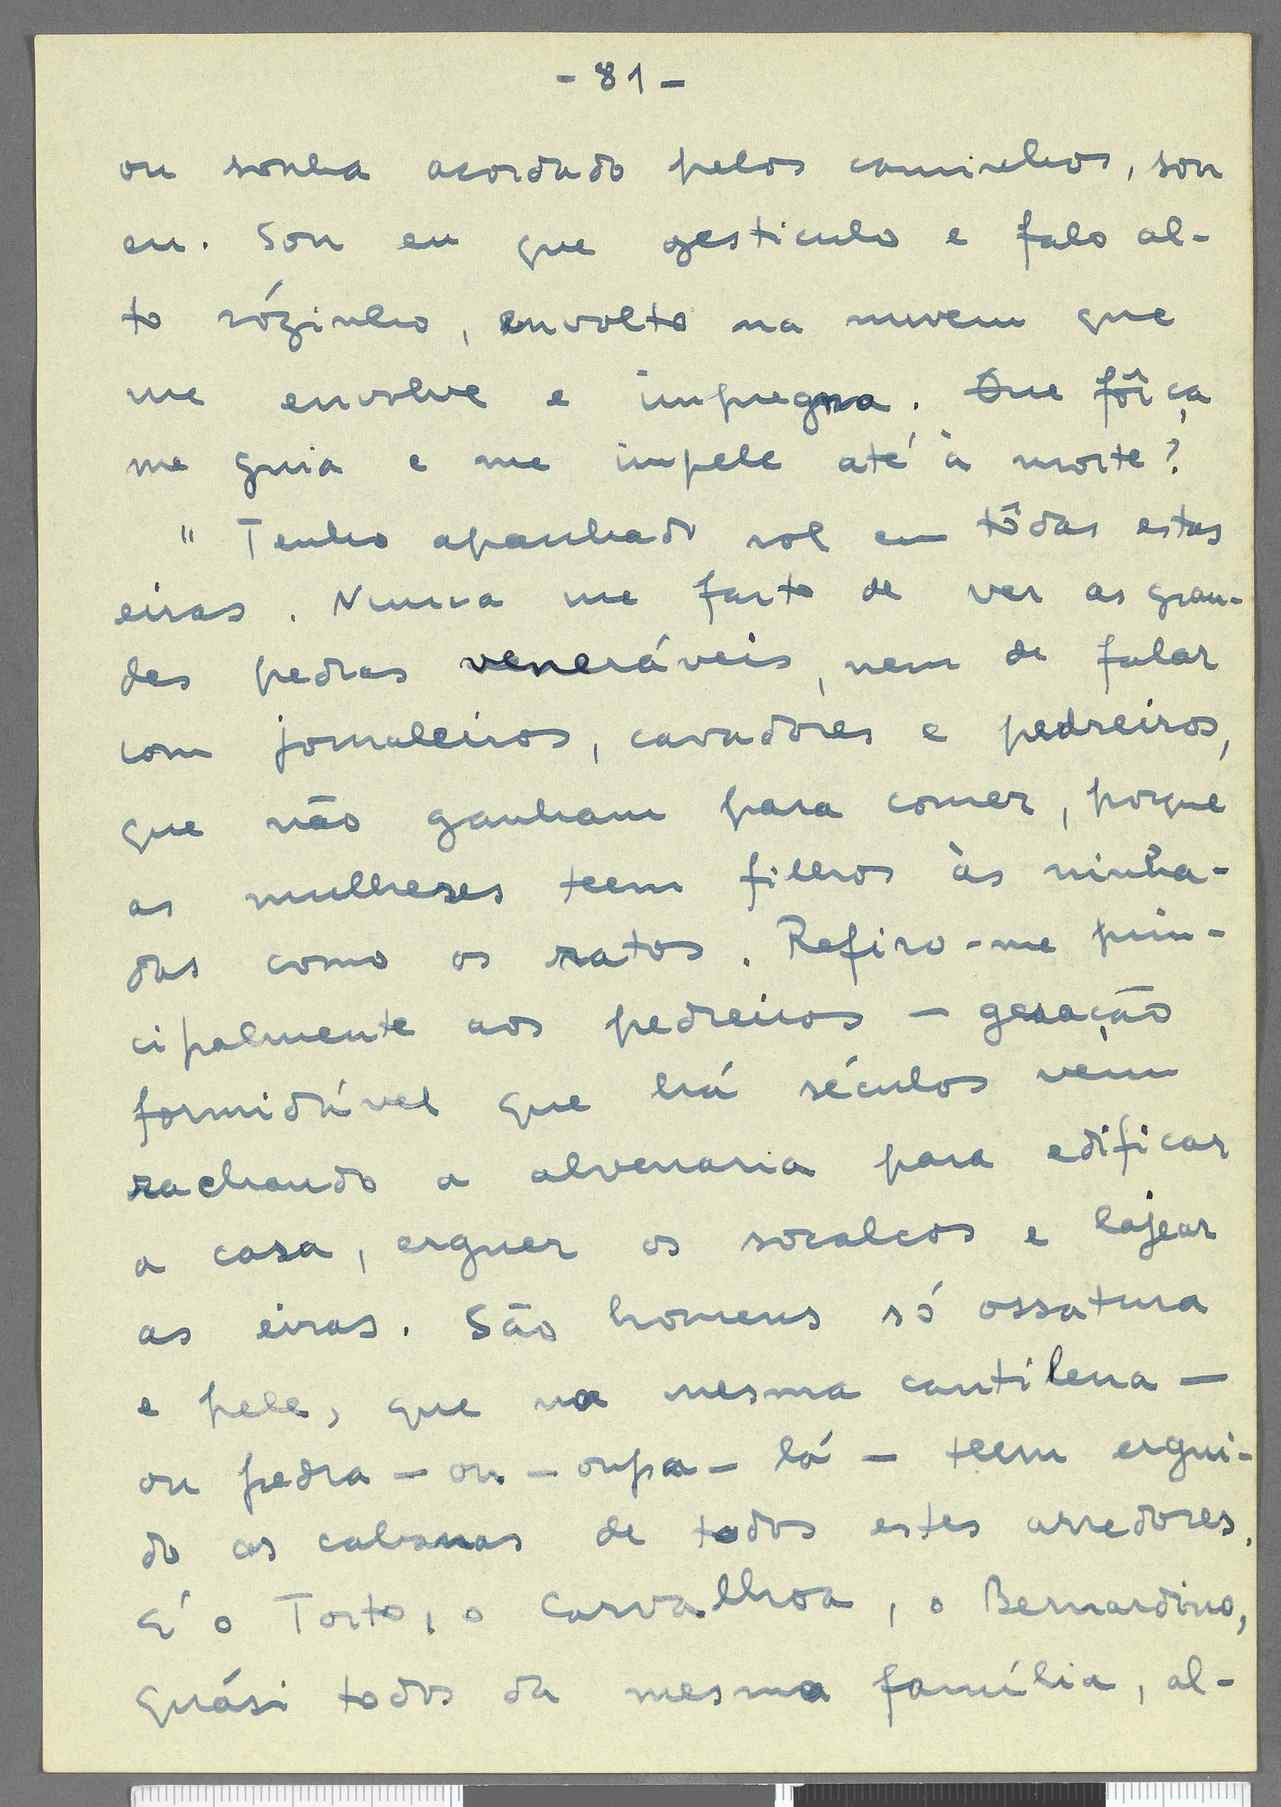 - 81 -
ou sonha acordado pelos caminhos, sou
eu. Sou eu que gesticulo e falo al-
to sózinho, envolto na nuvem que
me envolve e impregna. Que fôrça
me guia e me impele até à morte?
" Tenho apanhado sol em tôdas estas
eiras. Nunca me farto de ver as gran-
des pedras veneráveis, nem de falar
com jornaleiros, cavadores e pedreiros,
que não ganham para comer, porque
as mulheres teem filhos às ninha-
das como os ratos. Refiro-me prin-
cipalmente aos pedreiros - geração
formidável que há séculos vem
rachando a alvenaria para edificar
a casa, erguer os socalcos e lajear
as eiras. São homens só ossatura
e pele, que na mesma cantilena -
ou pedra - ou - oupa - lá - teem ergui-
do as cabanas de todos estes arredores.
É o Torto, o Carvalhoa, o Bernardino,
quási todos da mesma família, al-